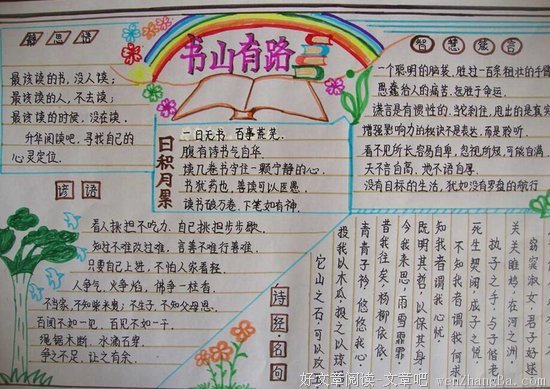 静思语
最该读的书,没人读;
最该读的人,不去读;
最该读的时候,没在读.
升华阅读吧,寻找自己的
心灵定位.
书山有路
智慧箴言
一个聪明的脑袋,胜过一百条粗壮的手臂
愚蠢给人的痛苦,甚胜于命运.
谎言是有惯性的,说到底,甩出的是真实
增强影响力的秘诀不是表达,而是聆听.
看不见所长容易自卑,忽视所短,可能自满
天不言自高,地不语自厚.
没有目标的生活,犹如没有罗盘的航行
日积月累
一日无书,百事荒芜.
腹有诗书气自华.
读几卷书守住一颗宁静的心.
书犹药也,善读可以医愚.
读书破万卷,下笔如有神.
谚语
看人挑担不吃力,自己挑担步步歇.
知过不难改过难,言善不难行善难.
只要自己上进,不怕人家看轻.
人争气,火争焰,佛争一柱香.
不当家,不知柴米贵;不生子,不知父母恩.
百闻不如一见,百见不如一干.
绳锯木断,水滴石穿.
争之不足,让之有余.
诗经名句
窈窕淑女,君子好逑
关关雎鸠,在河之洲.
执子之手,与子偕老
死生契阔,与子成说.
不知我者,谓我何求
知我者,谓我心忧.
既明且哲,以保其身
今我来思,雨雪霏霏.
昔我往矣,杨柳依依.
青青子衿,悠悠我心.
投我以木瓜,报之以琼琚
它山之石,可以攻玉
好文章阅读-文章吧-wenZhangBa.com